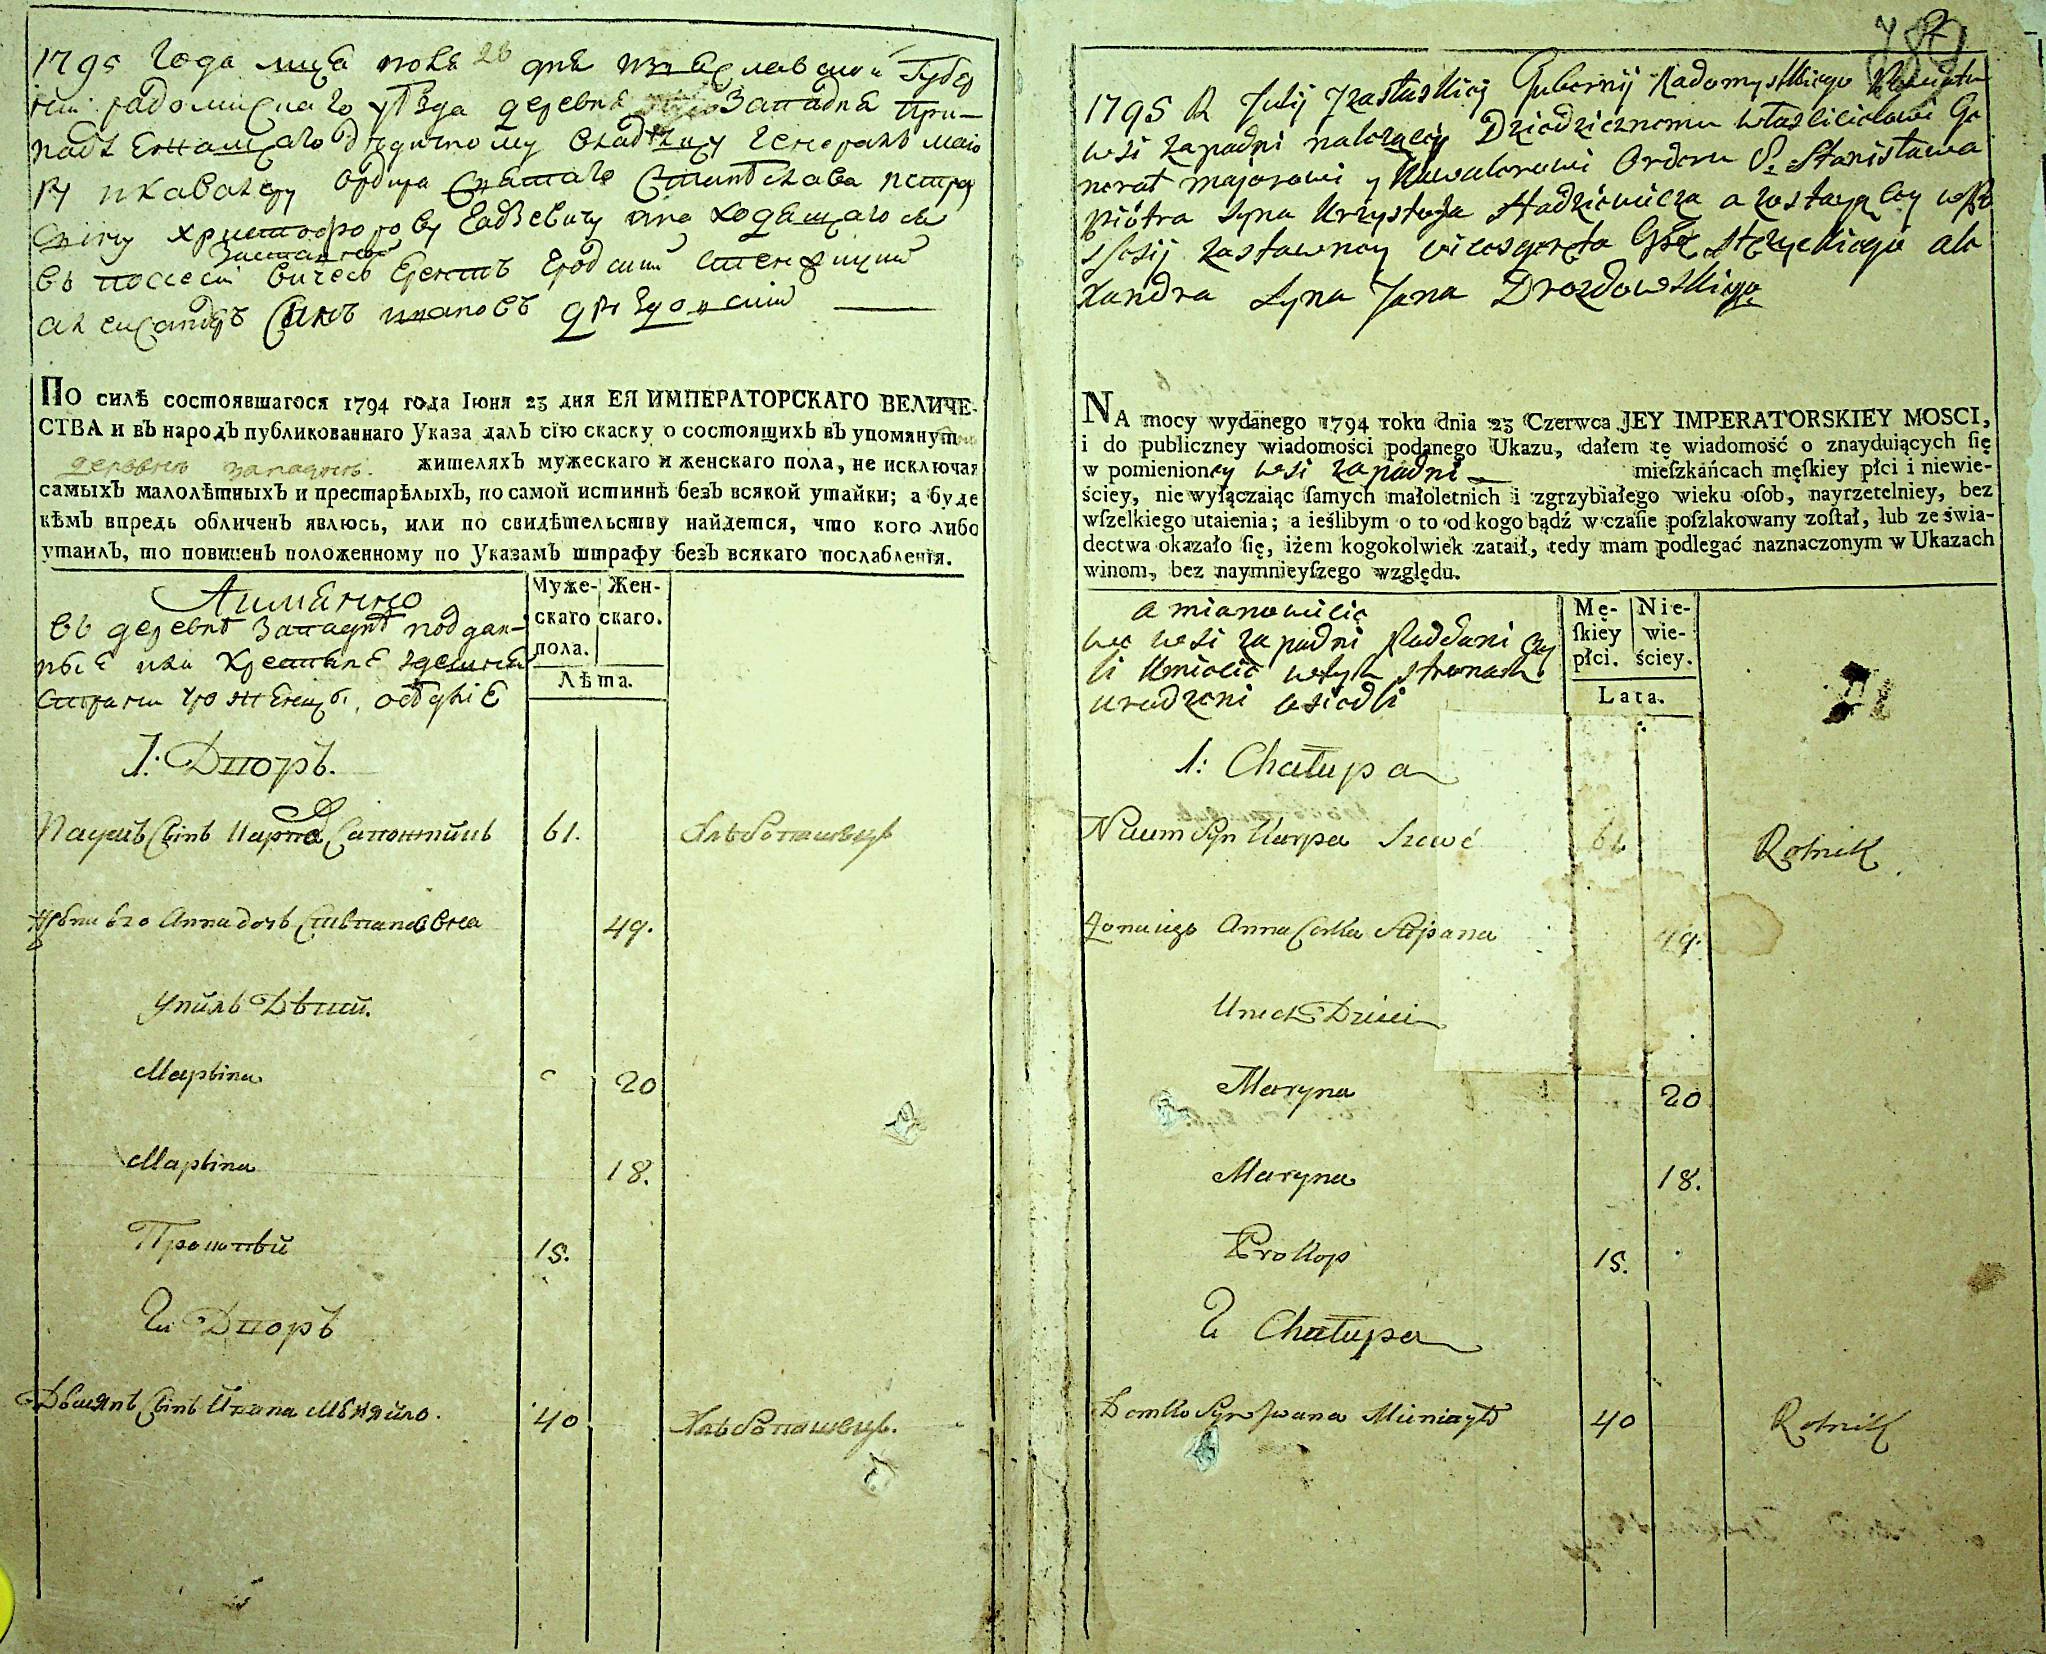 1795 года мца июля 28 дня Изяславской Губер
нии радомислаго уѣзда деревня Западня при-
надлежащаго дѣдичному владѣлцу Генералъ маіо
ру и кавалеру ордера Святаго Станислава петру
Сину христофорову Гадзевичу а находящагося
заставной
въ поссесіи вичесъ Гродскій
александръ Синъ ивановъ дроздовскій
По силѣ состоявшагося 1794 года Іюня 23 дня ЕЯ ИМПЕРАТОРСКАГО ВЕЛИЧЕ-
СТВА и въ народъ публикованнаго Указа далъ сїю скаску о состоящихъ въ упомянутой
деревни западни. жителяхъ мужескаго и женскаго пола, не исключая
самыхъ малолѣтныхъ и престарѣлыхъ, по самой истиннѣ безъ всякой утайки; а буде
кѣмъ впредь обличенъ явлюсь, или по свидѣтельству найдется, что кого либо
утаилъ, то повиненъ положенному по Указамъ штрафу безъ всякаго послабленїя.
Аимянно
въ деревнѣ Западнѣ поддан-
ные или Хрестяне здешней
Сторони уроженци, осѣдліе
Муже-
скаго
пола.
Жен-
скаго.
Лѣта.
1: Дворъ.
Наумъ Синъ Карпа Сапожникъ 61. Хлѣбопашецъ
Жена его Анна дочь Степановна 49.
У нихъ Дѣти.
Марына 20
Марына 18.
Прокопъ 15.
2й Дворъ
Демянъ Синъ Ивана Мѣняйло. 40 Хлѣбопашецъ.
1795 R Julij Izasławskiej Gubernij Radomyslkiego Powiatu
wsi zapadni należącey Dziedzicznemu właścicielowi Ge
nerał majorowi y Kawalerowi Orderu S. Stanisława
piótra syna Krzysztofa Hadziewicza a zostaiącey w Po
ssesij zastawney vicesgerenta Gro. Aleksandra
xandra syna Jana Drozdowskiego
NA mocy wydanego 1794 roku dnia 23 Czerwca JEY IMPERATORSKIEY MOSCI,
i do publiczney wiadomości podanego Ukazu, dałem tę wiadomość o znayduiących ſię
w pomienioney wsi zapadni mieſzkańcach męſkiey płci i niewie-
ściey, nie wyłączaiąc ſamych małoletnich i zgrzybiałego wieku oſob, nayrzetelniey, bez
wſzelkiego utaienia; a ieślibym o to od kogo bądź w czaſie poſzlakowany zoſtał, lub ze świa-
dectwa okazało ſię, iżem kogokolwiek zataił, tedy mam podlegać naznaczonym w Ukazach
winom, bez naymnieyſzego względu.
a mianowicie
we wsi zapadni Poddani czy
li Kmiecie w tych stronach
urodzeni osiedli
Mę-
ſkiey
płci.
Nie-
wie-
ściey.
Lata.
1: Chałupa
Naum Syn Karpa Szewc 61 Rolnik
Żona iego Anna Corka Stepana 49.
U nich Dzieci
Maryna 20
Maryna 18.
Prokop 15.
2 Chałupa
Demko Syn Iwana Mieniayło 40 Rolnik